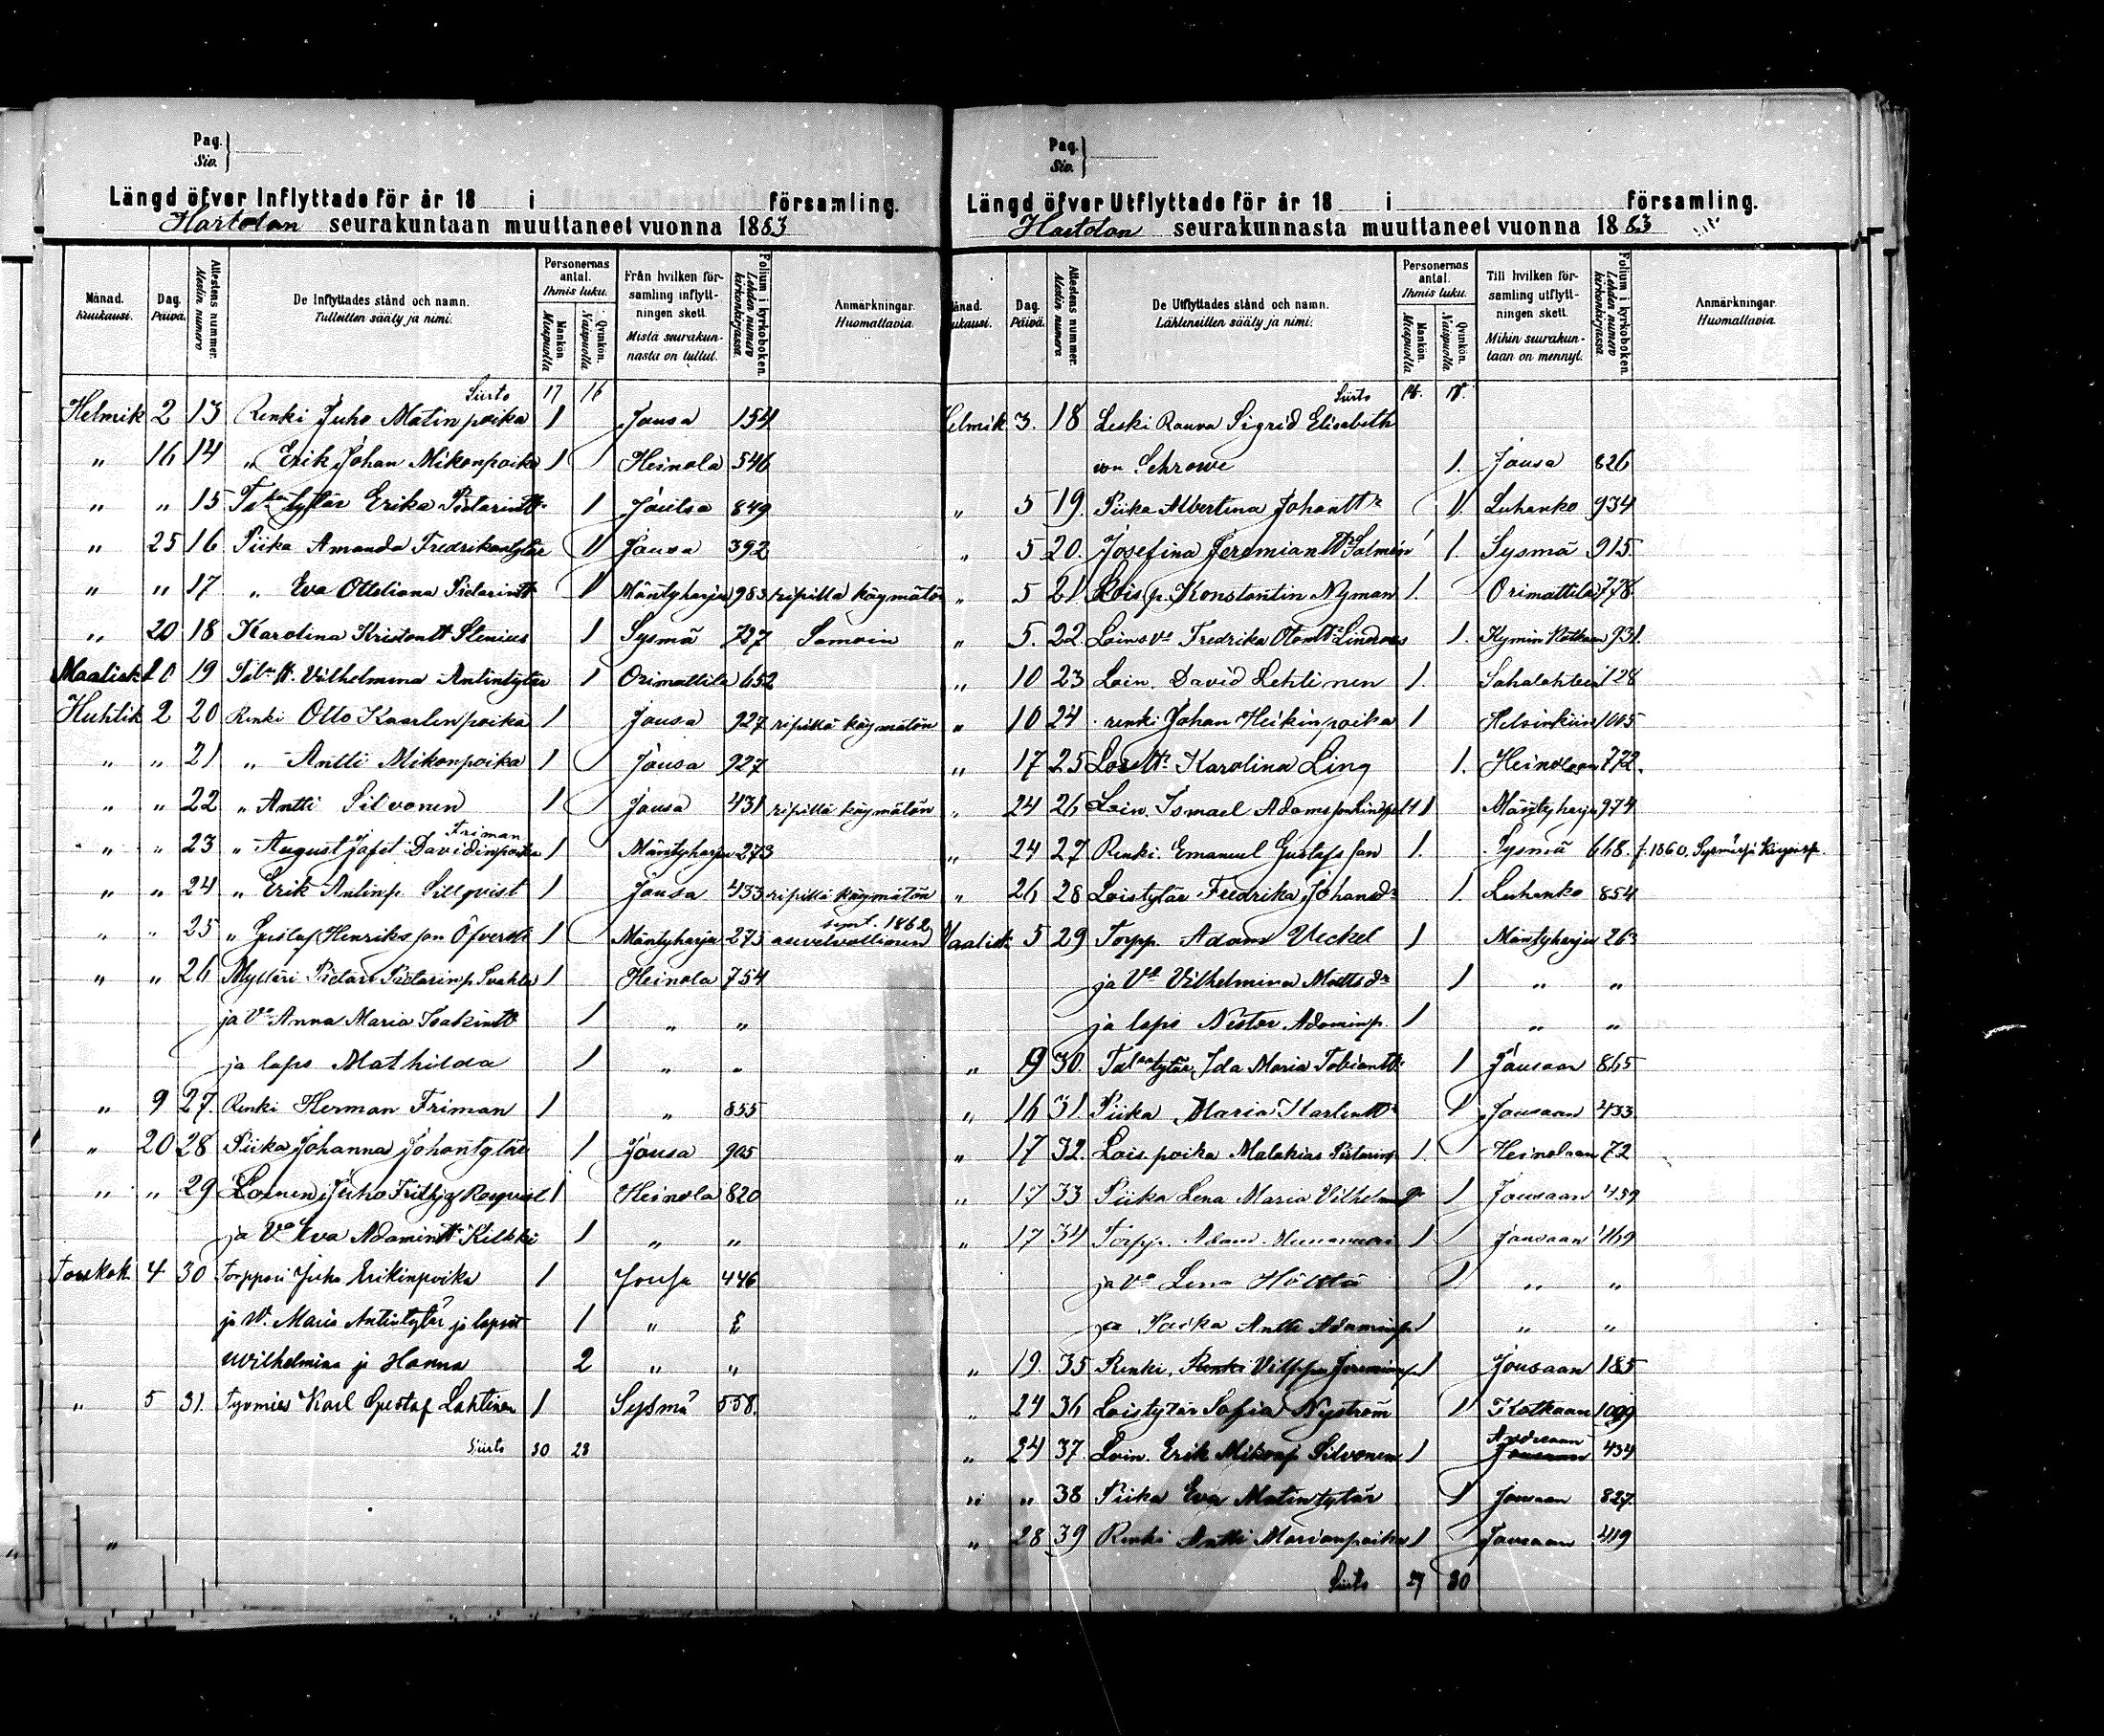 Pag.
Siv.
Längd öfver Inflyttade för år 18 i församling.
Hartolan seurakuntaan muuttaneet vuonna 1883
Månad. Kuukausi.
Dag. Päivä.
Attestens nummer. Alestin numero
De Inflyttades stånd och namn. Tulleitten sääty ja nimi.
Personernas antal. Ihmis luku.
Mankön. Miespuolta
Qvinkön. Naispuolta
Från hvilken församling inflyttningen skett. Mistä seurakunnasta on tullut.
Folium i kyrkoboken. Lehden numero kirkonkirjassa.
Anmärkningar. Huomattavia.
Siirto 17 16
Helmik 2 13 Renki Juho Matinpoika 1 Jousa 154
" 16 14 " Erik Johan Mikonpoika 1 Heinola 546
" " 15 tytär Erika 1 Joutsa 849
" 25 16 Piika Amanda Fredrikantytär 1 Jousa 392
" " 17 " Eva 1 Mäntyharju 983 ripillä käymätön
" 20 18 Karolina Stenius 1 Sysmä 727 Samoin
Maalisk 20 19 Vilhelmina Antintytär 1 Orimattila 652
Huhtik 2 20 Renki Otto Kaarlenpoika 1 Jousa 927 ripillä käymätön
" " 21 " Antti Mikonpoika 1 Jousa 927
" " 22 " Antti Silvonen 1 Jousa 431 ripillä käymätön
Friman
" " 23 " August Jafet Davidinpoika 1 Mäntyharju 273
" " 24 " Erik Antinp. Sillqvist 1 Jousa 433 ripillä käymätön
synt. 1862
" " 25 " Gustaf Henriksson 1 Mäntyharju 275 asevelvollinen
" " 26 Mylläri 1 Heinola 754
ja Vo Anna Maria 1 " "
ja laps Mathilda 1 " "
" 9 27. Renki Herman Friman 1 " 855
" 20 28 Piika Johanna Johantytär 1 Jousa 905
" " 29 Loinen Juho 1 Heinola 820
ja Vo Eva 1 " "
Toukok 4 30 torppari Juho Erikinpoika 1 Jousa 446
ja V. Maria Antintytär ja lapset 1 "
Wilhelmina ja Hanna 2 " "
" 5 31. Työmies Karl Gustaf Lahtinen 1 Sysmä 558.
Siirto 30 23
Pag.
Siv.
Längd öfver Utflyttade för år 18 i församling.
Hartolan seurakunnasta muuttaneet vuonna 1883
Månad. Kuukausi.
Dag. Päivä.
Attestens nummer. Alestin numero
De Utflyttades stånd och namn. Lähteneitten sääty ja nimi.
Personernas antal. Ihmis luku.
Mankön. Miespuolta
Qvinkön. Naispuolta
Till hvilken församling utflyttningen skett. Mihin seurakuntaan on mennyt.
Folium i kyrkoboken. Lehden numero kirkonkirjassa.
Anmärkningar. Huomattavia.
Siirto
Helmik 3. 18 Leski Rouva Sigrid Elisabeth
von Schrowe 1. Jousa 826
" 5 19. Piika Albertina 1. Luhanko 934
" 5 20. Josefina Salmén 1. Sysmä 915
" 5 21. Konstantin Nyman 1. Orimattila 778.
" 5. 22. Fredrika 1. Kymin 931.
" 10 23 Loin. David Lehtinen 1. 128
" 10 24 renki Johan Heikinpoika 1 Helsinkiin 1005
" 17 25 Karolina Ling 1. Heinolaan 772.
" 24 26 Loin. Ismael 1 Mäntyharju 974
" 24 27 Renki. Emanuel Gustafsson 1. Sysmä 668. f. 1860.
" 26 28 Loistytär Fredrika Johansdr 1. Luhanko 854
Maalisk 5 29 Torpp. Adam Veckel 1 Mäntyharju 263
ja Vo Vilhelmina Mattsdr 1 " "
ja laps Nestor Adaminp. 1 " "
" 9 30. tytär Ida Maria 1 Jousaan 865
" 16 31. Piika Maria 1 Jousaan 433
" 17 32. Lois poika Malakias 1. Heinolaan 72
" 17 33 Piika Lena Maria 1 Jousaan 459
" 17 34 Torpp. Adam 1 Jousaan 469
ja Vo Lena Hölttä 1 " "
ja Poika Antti Adaminp. 1 " "
" 19. 35 Renki. 1 Jousaan 185
" 24 36 Loistytär Sofia Nyström 1 Kotkaan 1099
" 24 37. Loin. Erik Mikonp. Silvonen 1 434
" " 38 Piika Eva Matintytär 1 Jousaan 827.
" 28 39 Renki Antti 1 Jousaan 419
Siirto 27 30